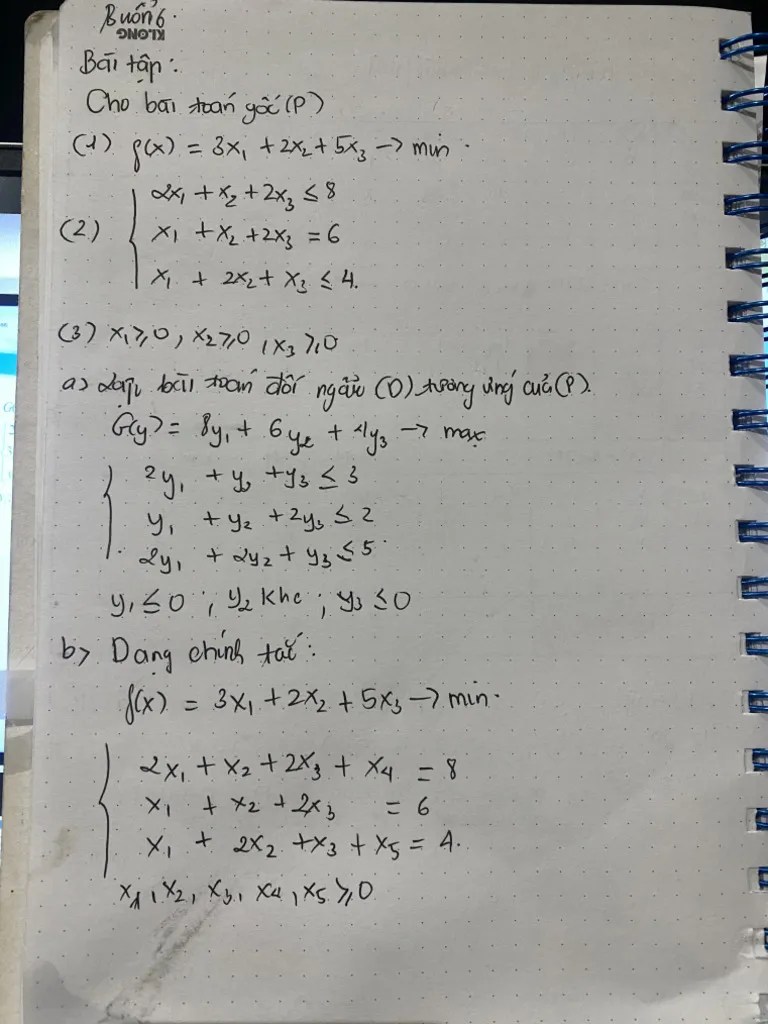 Buổi 6.
KLONG
Bài tập:
Cho bài toán gốc (P)
(1) f(x) = 3x₁ + 2x₂ + 5x₃ → min.
(2) { 2x₁ + x₂ + 2x₃ ≤ 8
x₁ + x₂ + 2x₃ = 6
x₁ + 2x₂ + x₃ ≤ 4.
(3) x₁ ≥ 0, x₂ ≥ 0, x₃ ≥ 0
a) Lập bài toán đối ngẫu (D) tương ứng của (P).
G(y) = 8y₁ + 6y₂ + 4y₃ → max
{ 2y₁ + y₂ + y₃ ≤ 3
y₁ + y₂ + 2y₃ ≤ 2
2y₁ + 2y₂ + y₃ ≤ 5
y₁ ≤ 0 ; y₂ khc ; y₃ ≤ 0
b) Dạng chính tắc:
f(x) = 3x₁ + 2x₂ + 5x₃ → min.
{ 2x₁ + x₂ + 2x₃ + x₄ = 8
x₁ + x₂ + 2x₃ = 6
x₁ + 2x₂ + x₃ + x₅ = 4.
x₁, x₂, x₃, x₄, x₅ ≥ 0